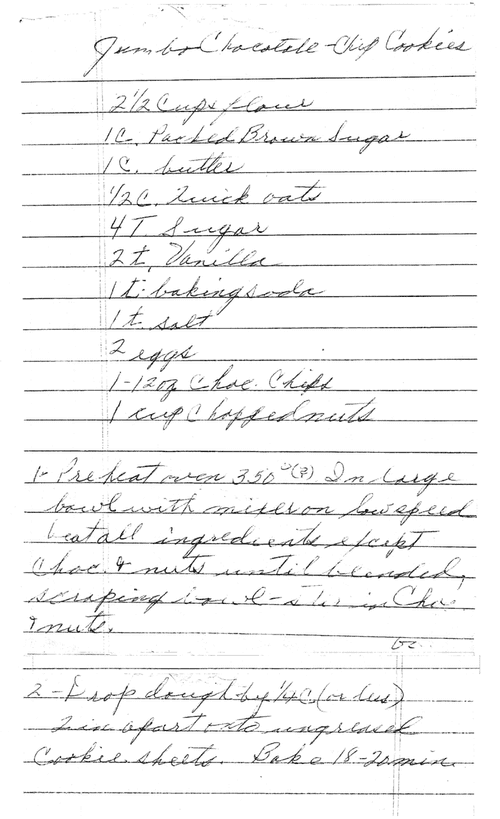 Jumbo Chocolate-Chip Cookies
2 1/2 Cups flour
1C. Packed Brown Sugar
1C. butter
1/2C. Quick oats
4T Sugar
2t. Vanilla
1t. baking soda
1t. salt
2 eggs
1-12oz Choc. Chips
1 cup Chopped nuts
1- Preheat oven 350°(?) In large
bowl with mixer on low speed
beat all ingredients except
Choc. & nuts until blended,
scraping bowl - stir in Choc
& nuts.
2 - Drop dough by 1/4C. (or less)
2in apart onto ungreased
Cookie sheets. Bake 18-20 min.